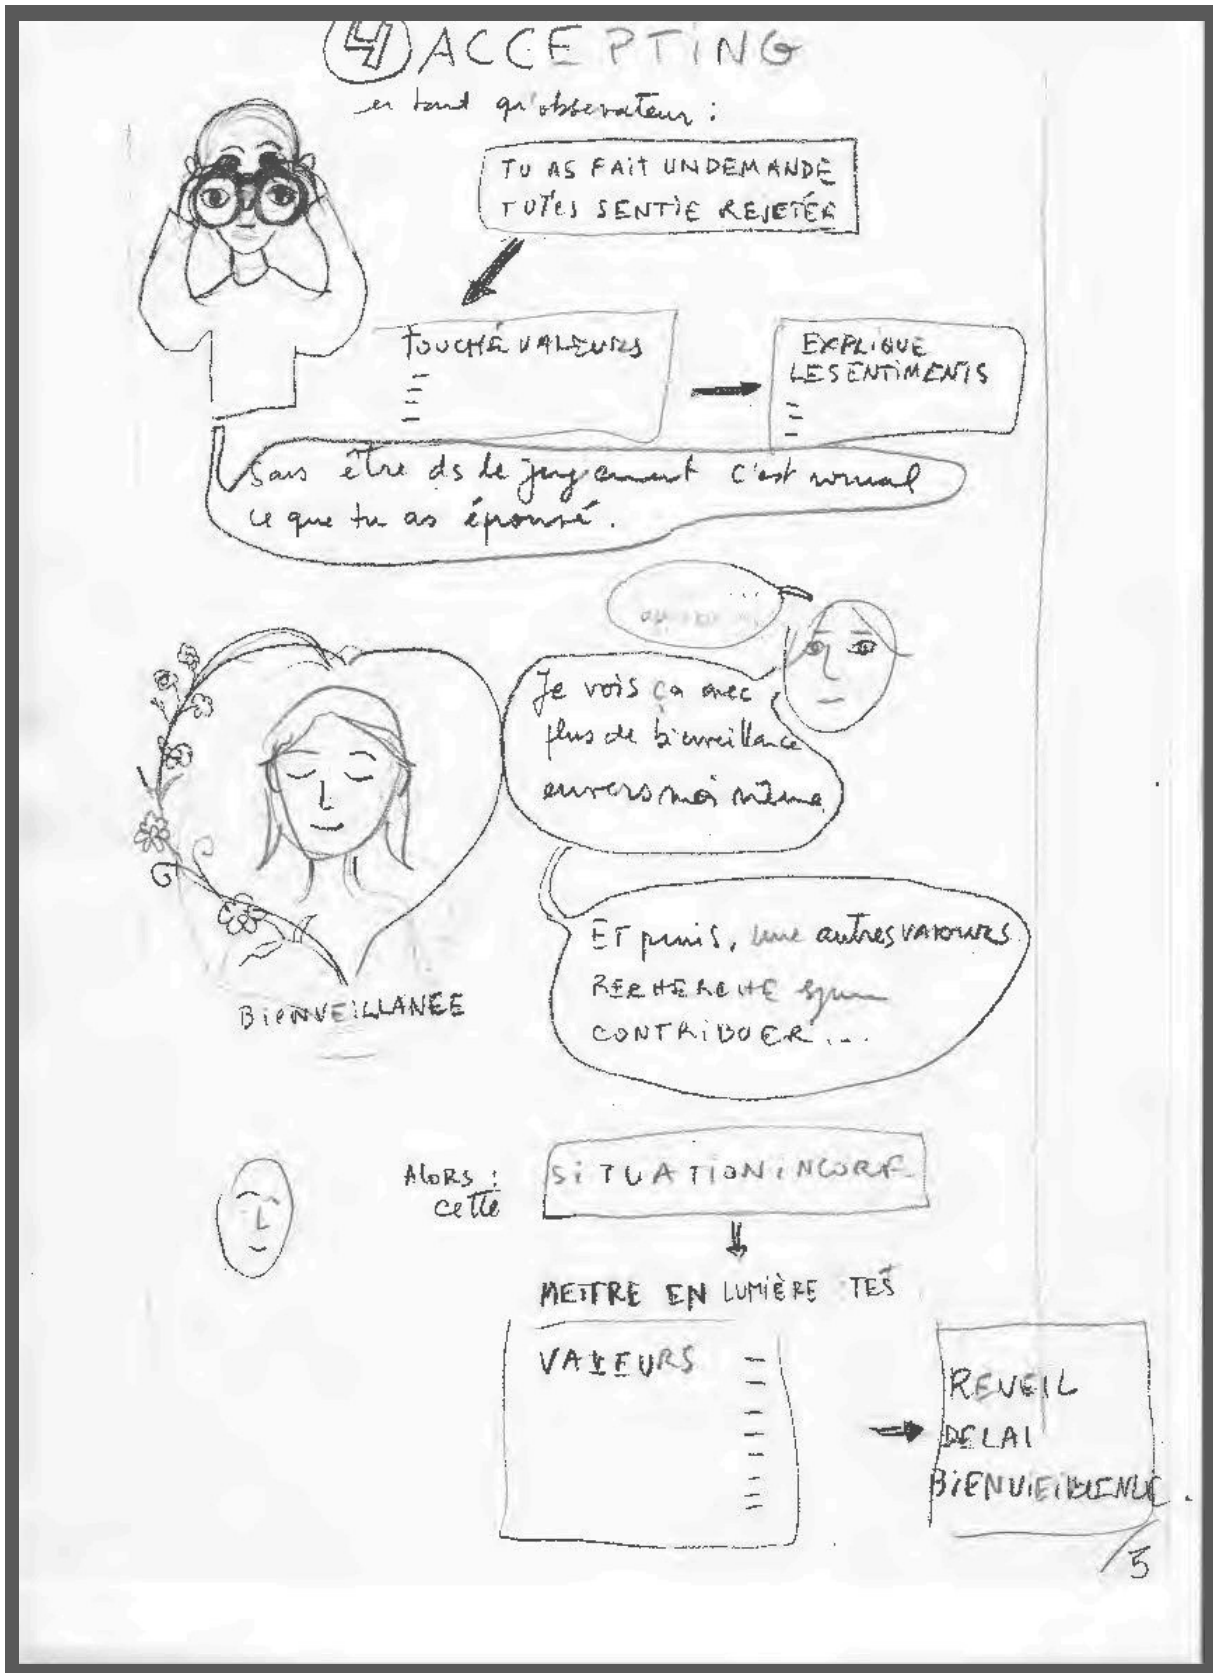 4 ACCEPTING
en tant qu'observateur :
TU AS FAIT UN DEMANDE
TU T'ES SENTIE REJETÉE
TOUCHÉ VALEURS
EXPLIQUE
LES ENTIMENTS
Sans être ds le jugement c'est normal
ce que tu as éprouvé.
...
Je vois ça avec
plus de bienveillance
envers moi même
ET puis, une autres VALOURS
RECHERCHE
CONTRIBUER...
BIENVEILLANCE
ALORS :
cette
SITUATION INCORF
METTRE EN LUMIÈRE TES
VALEURS
REVEIL
DE LAI
/5